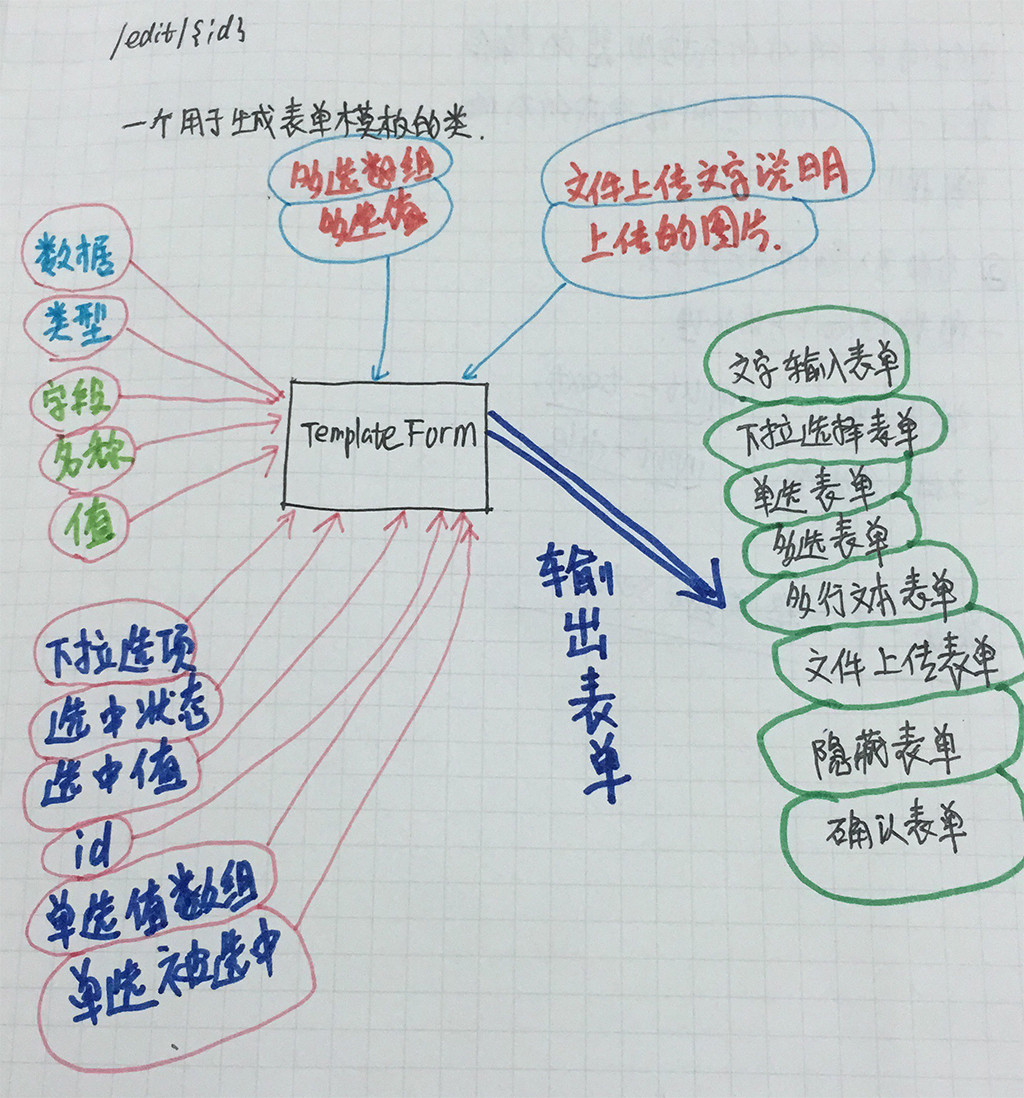 /edit/{id}
一个用于生成表单模板的类.
多选数组
多选值
文件上传文字说明
上传的图片.
数据
类型
字段
名称
值
TemplateForm
下拉选项
选中状态
选中值
id
单选值数组
单选被选中
输出表单
文字输入表单
下拉选择表单
单选表单
多选表单
多行文本表单
文件上传表单
隐藏表单
确认表单